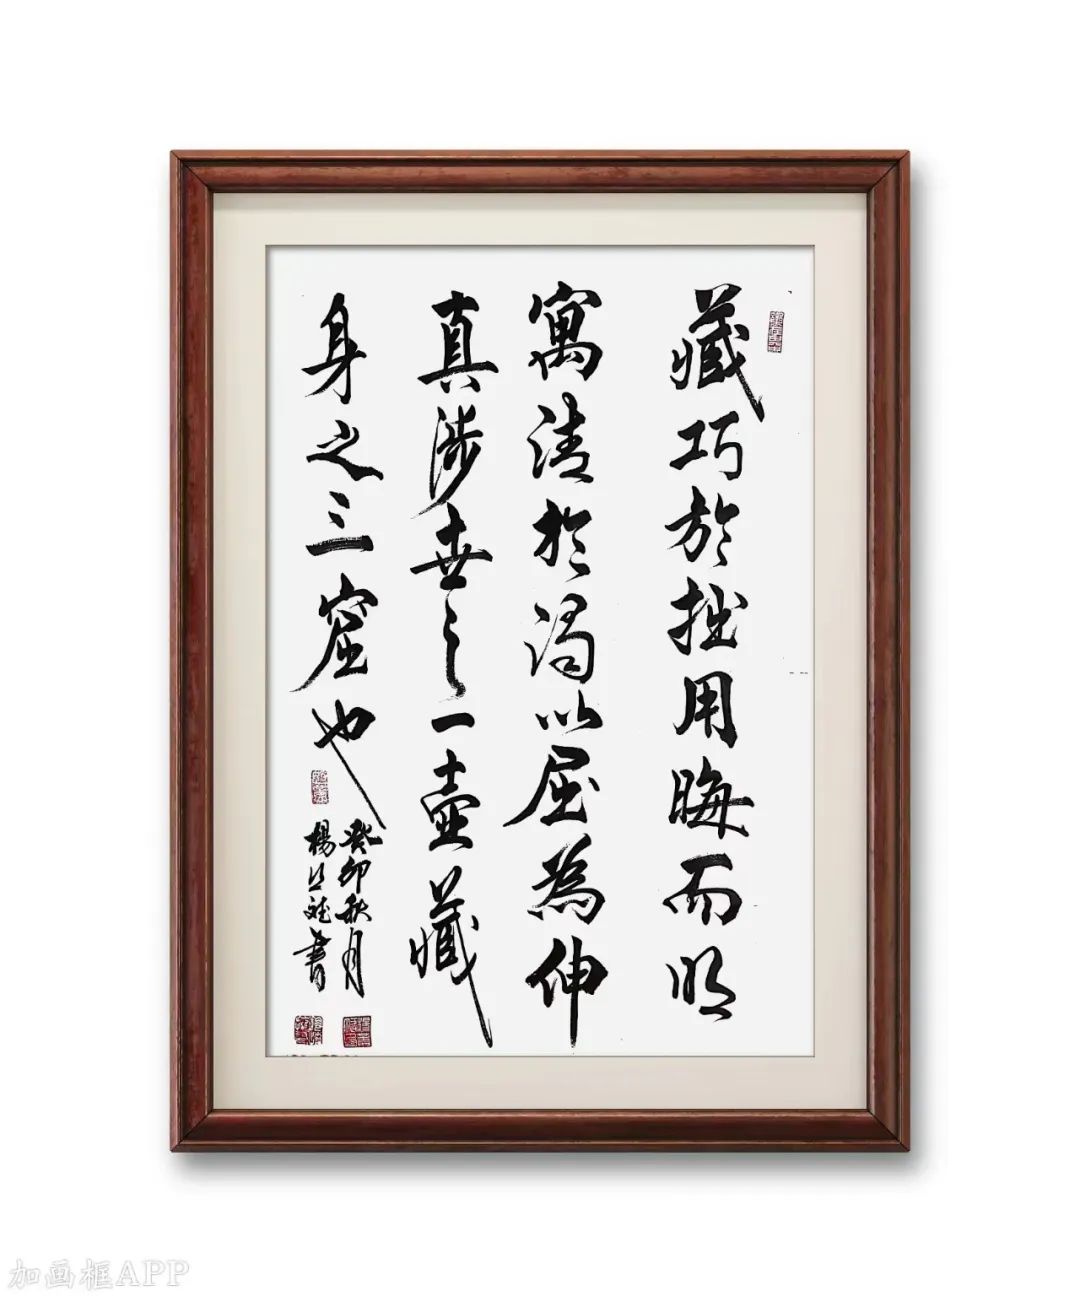 藏巧於拙用晦而明
寓清於濁以屈為伸
真涉世之一壺藏
身之三窟也
癸卯秋月
楊書
加画框APP